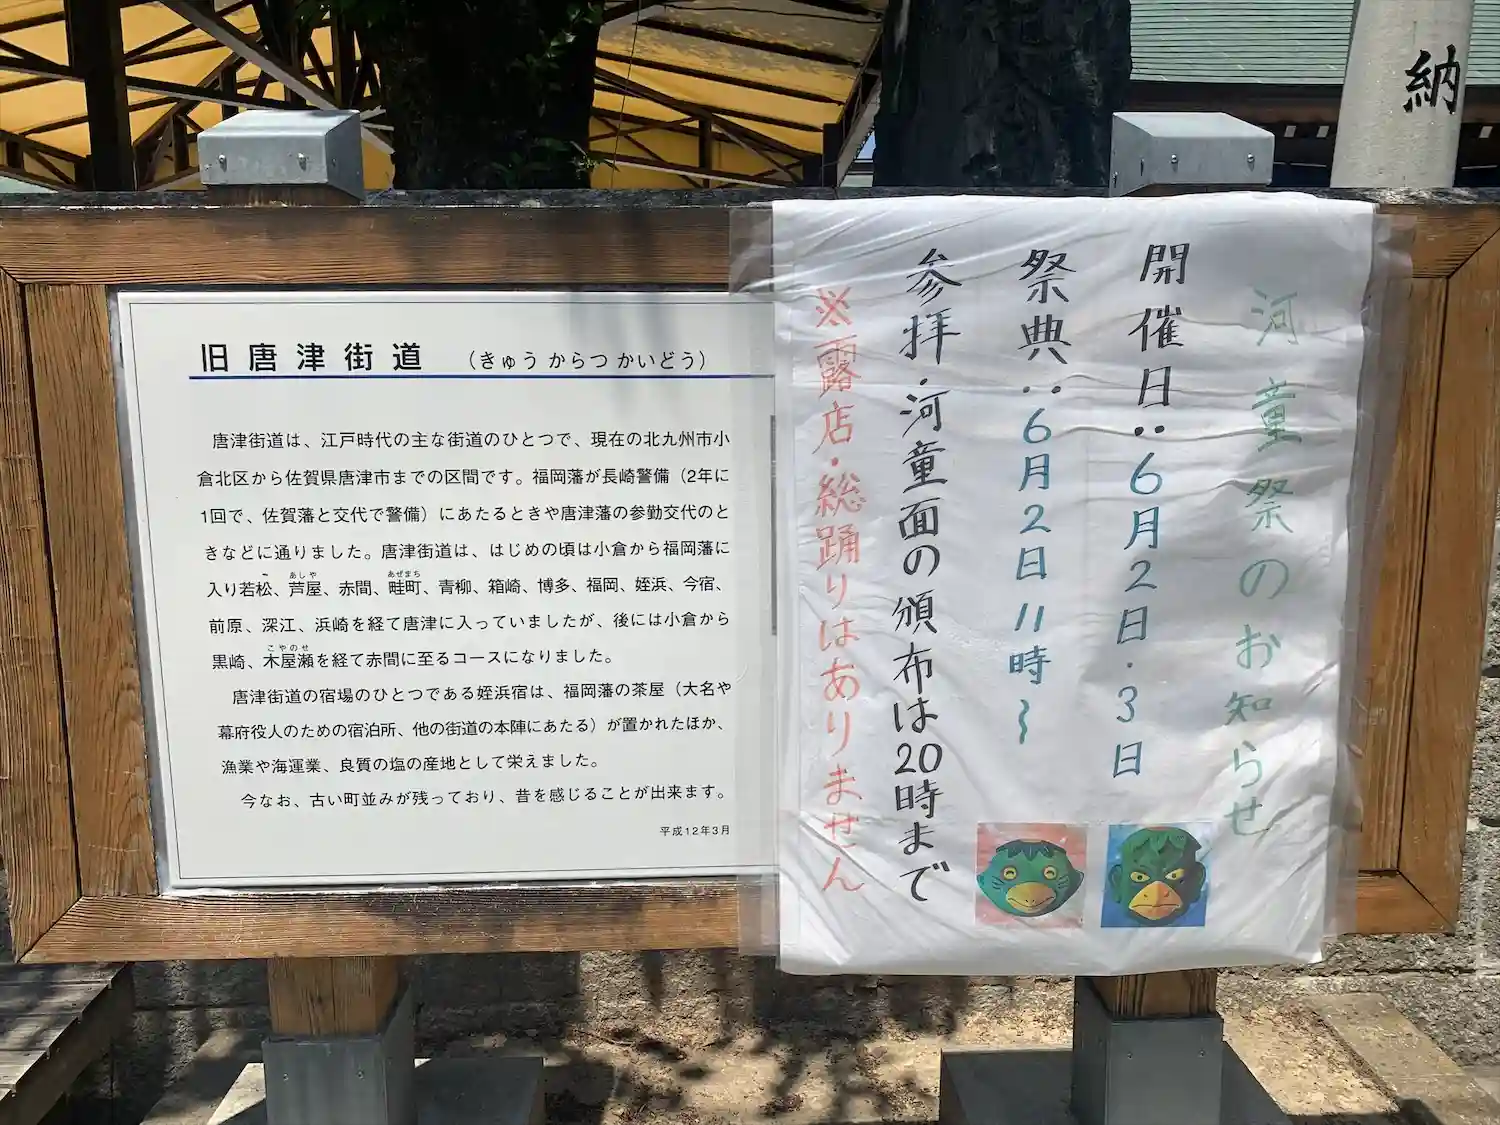 納
旧唐津街道 （きゅう からつ かいどう）
唐津街道は、江戸時代の主な街道のひとつで、現在の北九州市小
倉北区から佐賀県唐津市までの区間です。福岡藩が長崎警備（2年に
1回で、佐賀藩と交代で警備）にあたるときや唐津藩の参勤交代のと
きなどに通りました。唐津街道は、はじめの頃は小倉から福岡藩に
あしや あぜまち
入り若松、芦屋、赤間、畦町、青柳、箱崎、博多、福岡、姪浜、今宿、
前原、深江、浜崎を経て唐津に入っていましたが、後には小倉から
こやのせ
黒崎、木屋瀬を経て赤間に至るコースになりました。
唐津街道の宿場のひとつである姪浜宿は、福岡藩の茶屋（大名や
幕府役人のための宿泊所、他の街道の本陣にあたる）が置かれたほか、
漁業や海運業、良質の塩の産地として栄えました。
今なお、古い町並みが残っており、昔を感じることが出来ます。
平成12年3月
河童祭のお知らせ
開催日：6月2日・3日
祭典：6月2日11時〜
参拝・河童面の頒布は20時まで
※露店・総踊りはありません